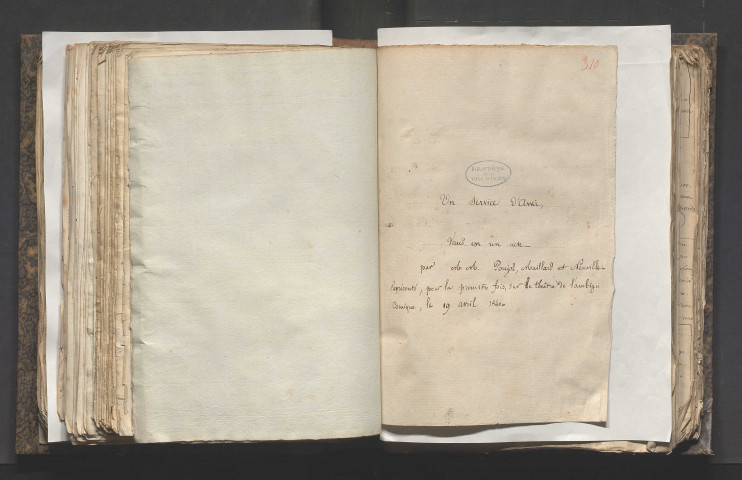 310
BIBLIOTHÈQUE
Un Service D'Ami,
Vaud. en un acte
par M M. Poujol, Maillard et Neuville
représenté, pour la première fois, sur le théâtre de l'ambigu
Comique, le 19 avril